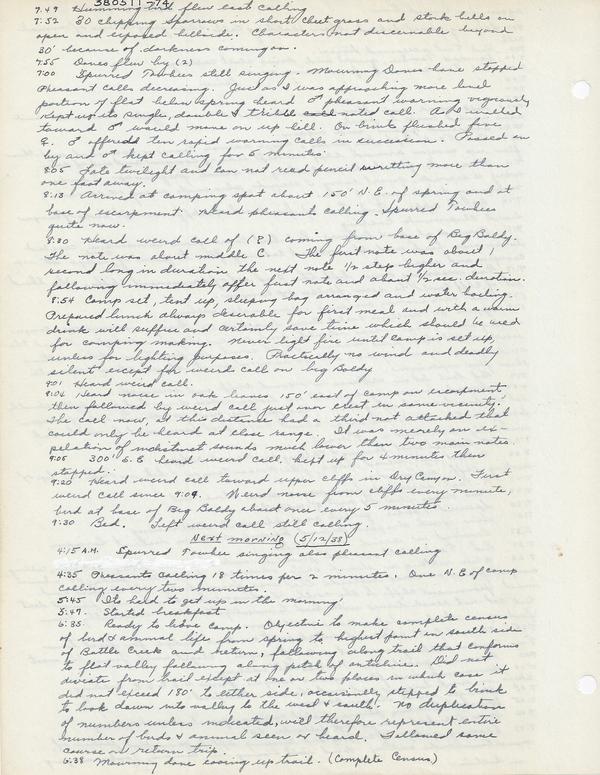 380511 774
7:49 Humming bird flew east calling
7:52 30 chipping sparrows in short cheet grass and stork bells on
open and exposed hillside. Characters not discernable beyond
30' because of darkness coming on.
7:55 Doves flew by (2)
7:00 Spurred Towhees still singing. Mourning Doves have stopped
Pheasant calls decreasing. Just as I was approaching more level
portion of flat below spring heard ♂ pheasant warning vigorously
kept up its single, double & trible noted call. As I walked
toward ♂ would move on up hill. On brink flushed
♀. ♂ offered ten rapid warning calls in succession. Passed on
by and ♂ kept calling for 5 minutes.
8:05 Late twilight and can not read pencil writting more than
one foot away.
8:13 Arrived at camping spot about 150' N.E. of spring and at
base of escarpment. Heard pheasants calling. Spurred Towhees
quite now.
8:30 Heard weird call of (?) coming from base of Big Baldy.
The note was about middle C. The first note was about 1
second long in duration the next note 1/2 step higher and
following immediately after first note and about 1/2 sec. duration.
8:54 Camp set, tent up, sleeping bag arranged and water boiling.
Prepared lunch always desirable for first meal and with a warm
drink will suffice and certainly save time which should be used
for camping making. Never light fire until camp is set up,
unless for lighting purposes. Practically no wind and deadly
silent except for weird call on big Baldy
9:01 Heard weird call.
9:04 Heard noise in oak leaves 150' east of camp on escarpment
then followed by weird call just once east in same vicinity.
The call now, at this distance had a third not attached that
could only be heard at close range. It was merely an ex-
pelation of sounds much lower than two main notes.
9:05 300' S.E. heard weird call, kept up for 4 minutes then
stopped.
9:20 Heard weird call toward upper cliffs in Dry Canyon. First
weird call since 9:09. Weird noise from cliffs every minute,
bird at base of Big Baldy about once every 5 minutes.
9:30 Bed. Left weird call still calling.
Next morning (5/12/38)
4:15 A.M. Spurred Towhee singing also pheasant calling
4:35 Pheasants calling 18 times per 2 minutes. One N.E. of camp
calling every two minutes.
5:45 Its hard to get up in the morning
5:47. Started breakfast
6:35. Ready to leave camp. Objective to make complete census
of bird & animal life from spring to highest point in south side
of Battle Creek and return, following along trail that conforms
to flat valley following along pitch of anticline. Did not
diviate from trail except at one or two places in which case it
did not exceed 180' to either side, occasionly stepped to brink
to look down into valley to the west & south. No duplication
of numbers unless indicated, will therefore represent entire
number of birds & animal seen or heard. Followed same
course on return trip.
6:38 Mourning dove cooing up trail. (Complete Census)